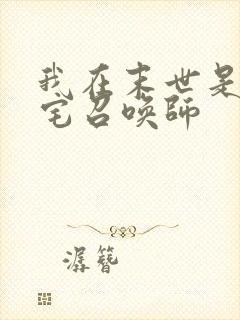 我在末世是
宅召唤师
潺簪